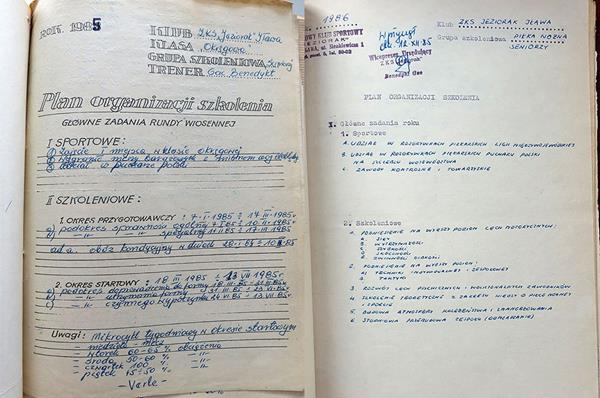 ROK 1985
KLUB ZKS "Jeziorak" Iława
KLASA "Okręgowa"
GRUPA SZKOLENIOWA Seniorzy
TRENER Gac Benedykt
Plan organizacji szkolenia
GŁÓWNE ZADANIA RUNDY WIOSENNEJ
I SPORTOWE:
a) zajęcie miejsca w klasie okręgowej
b)
c) udział w pucharze polski
II SZKOLENIOWE:
1. OKRES PRZYGOTOWAWCZY: 7.I.1985 ÷ 17.III.1985r.
a) podokres sprawności ogólnej 7.I.85 ÷
b) —„— specjalnej
ad.a. obóz kondycyjny w dniach
2. OKRES STARTOWY: 18 III 1985 ÷ 13 VII 1985r.
a) podokres doprowadzenia do formy
b) —„— utrzymania formy
c) —„— czynnego wypoczynku
Uwagi: Mikrocykl tygodniowy w okresie startowym
– niedziela – mecz
– wtorek 60-65% obciążenia
– środa 50-60% —„—
– czwartek 100% —„—
– piątek 15-50% —„—
– Verte –
1986
KLUB SPORTOWY
"JEZIORAK"
IŁAWA, ul. Sienkiewicza 1
Wpłynął
dn. 12.XII.85
Wiceprezes Urzędujący
ZKS
Benedykt Gac
Klub ZKS JEZIORAK IŁAWA
Grupa szkoleniowa PIŁKA NOŻNA
SENIORZY
PLAN ORGANIZACJI SZKOLENIA
I. Główne zadania roku
1. Sportowe
A. UDZIAŁ W ROZGRYWKACH PIŁKARSKICH LIGI MIĘDZYWOJEWÓDZKIEJ
B. UDZIAŁ W ROZGRYWKACH PIŁKARSKICH PUCHARU POLSKI
NA SZCZEBLU WOJEWÓDZTWA
C. ZAWODY KONTROLNE I TOWARZYSKIE
2. Szkoleniowe
1. PODNIESIENIE NA WYŻSZY POZIOM CECH MOTORYCZNYCH:
A. SIŁY
B. WYTRZYMAŁOŚCI
C. SZYBKOŚCI
D. SKOCZNOŚCI
E. ZWINNOŚCI, GIBKOŚCI
2. PODNIESIENIE NA WYŻSZY POZIOM:
A) TECHNIKI INDYWIDUALNEJ I ZESPOŁOWEJ
B) TAKTYKI
3. ROZWÓJ CECH PSYCHICZNYCH I WOLICJONALNYCH ZAWODNIKÓW
4. SZKOLENIE TEORETYCZNE Z ZAKRESU WIEDZY O PIŁCE NOŻNEJ
I SPORCIE
5. BUDOWA ATMOSFERY KOLEŻEŃSTWA I ZAANGAŻOWANIA
6. STOPNIOWA PRZEBUDOWA ZESPOŁU (ODMŁADZANIE)